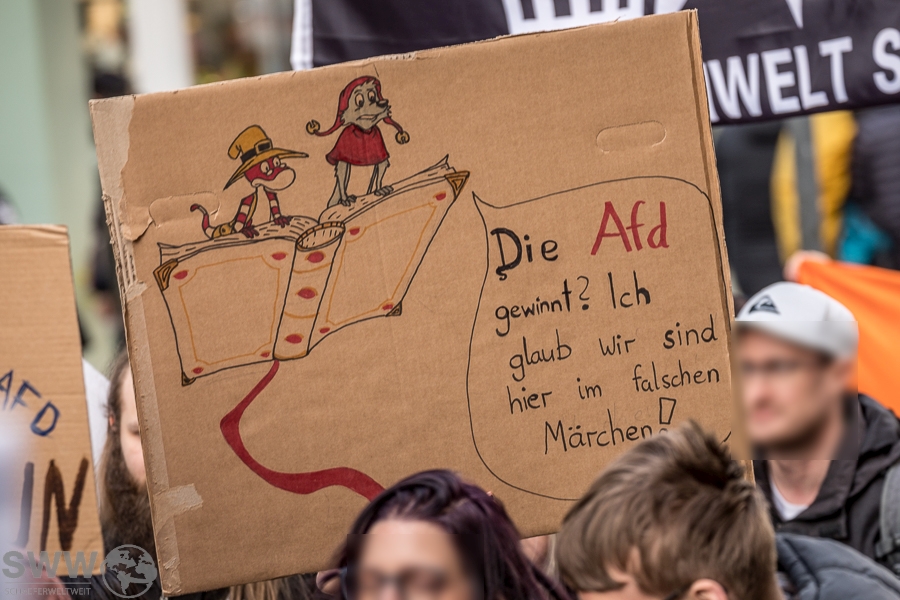 WELT S
Die Afd
gewinnt? Ich
glaub wir sind
hier im falschen
Märchen!
AFD
IN
SWW